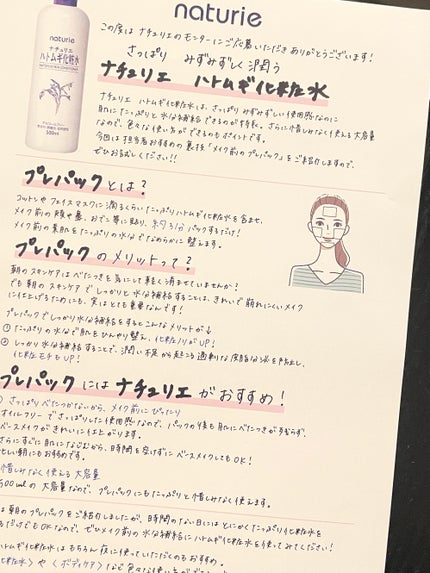 naturie
この度は ナチュリエのモニターにご応募いただき ありがとうございます!
さっぱり みずみずしく潤う
ナチュリエ ハトムギ化粧水
naturie
ナチュリエ
ハトムギ化粧水
500ml
ナチュリエ ハトムギ化粧水は、さっぱりみずみずしい使用感なのに
肌にたっぷりと水分補給できるのが特長。さらに惜しみなく使える大容量
なので、色々な使い方ができるのもポイントです。
今回は担当者おすすめの裏技「メイク前のプレパック」をご紹介しますので、
ぜひお試しください!!
プレパックとは?
コットンやフェイスマスクに滴るくらいたっぷりハトムギ化粧水を含ませ、
メイク前の頬や鼻、おでこ等に貼り、約3分パックするだけ!
メイク前の素肌をたっぷりの水分でなめらかに整えます。
プレパックのメリットって?
朝のスキンケアはべたつきを気にして軽く済ませていませんか?
でも朝のスキンケアでしっかりと水分補給することは、きれいで崩れにくいメイク
に仕上げるためにも、実はとても重要なんです!
プレパックでしっかり水分補給をするとこんなメリットが↓
① たっぷりの水分で肌をひんやり整え、化粧ノリがUP!
② しっかり水分補給することで、潤い不足から起こる過剰な皮脂分泌を予防し、
化粧モチもUP!
プレパックにはナチュリエがおすすめ!
さっぱりべたつかないから、メイク前にぴったり
オイルフリーでさっぱりした使用感なので、パックの後も肌にべたつきが残らず、
ベースメイクがきれいに仕上がります。
さらにすぐに肌になじむから、時間を空けずにベースメイクしてもOK!
忙しい朝にもおすすめです。
惜しみなく使える大容量
500mlの大容量なので、プレパックにもたっぷりと惜しみなく使えます。
は朝のプレパックをご紹介しましたが、時間のない日にはとにかくたっぷり化粧水を
るだけでもOKなので、ぜひメイク前の水分補給にハトムギ化粧水を使ってみてください!
ハトムギ化粧水はもちろん夜に使っていただくのもおすすめ。
化粧水〉や〈ボディケア〉など色々な使い方が